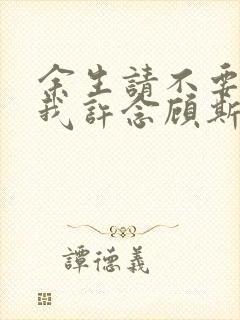 余生請不要
我許念顧斯
譚德義